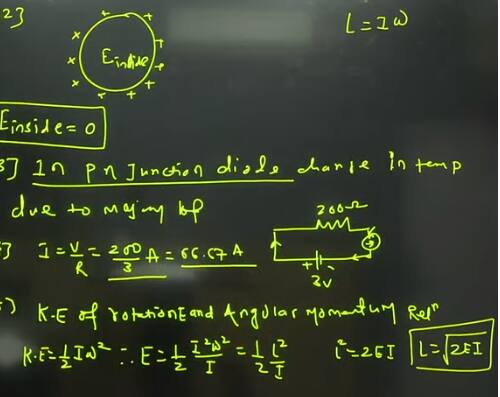 2]
L = I ω
E inside
E inside = 0
3] In pn Junction diode change In temp
due to
200Ω
I = V/R = 200/3 A = 66.67 A
+
3v
K.E of rotation E and Angular Momentum Relⁿ
K.E = 1/2 Iω² ∴ E = 1/2 I²ω²/I = 1/2 L²/I L² = 2EI L = √2EI